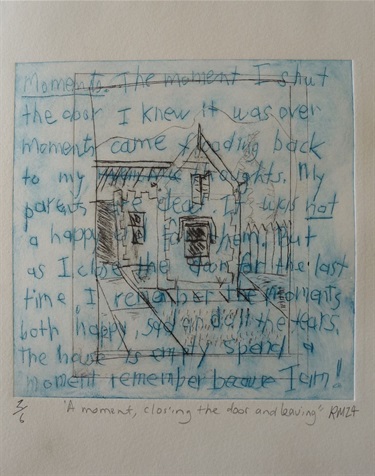 Moments. The moment I shut
the door I knew it was over
moments came flooding back
to my thoughts. My
parents are dead. It was not
a happy for them. but
as I close the door for the last
time I remember the moments
both happy, sad and all the tears.
The house is empty spend a
moment remember because I am!
2/6 'A moment, closing the door and leaving' RM24